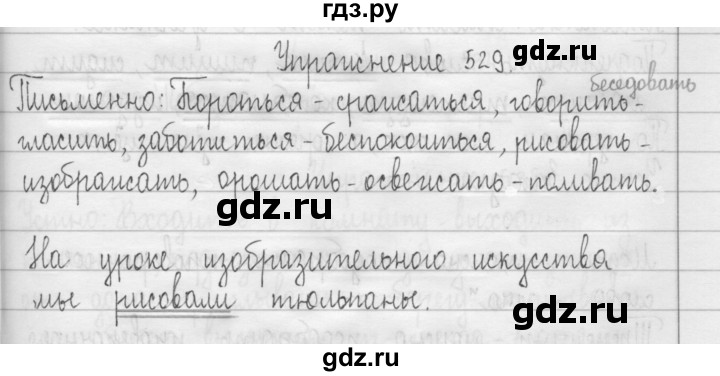 гдз.ру
Упражнение 529.
gdz.ru
беседовать
Письменно: Бороться - сражаться, говорить -
гласить, заботиться - беспокоиться, рисовать -
изображать, орошать - освежать - поливать.
gdz.ru
На уроке изобразительного искусства
мы рисовали тюльпаны.
gdz.ru
gdz.ru